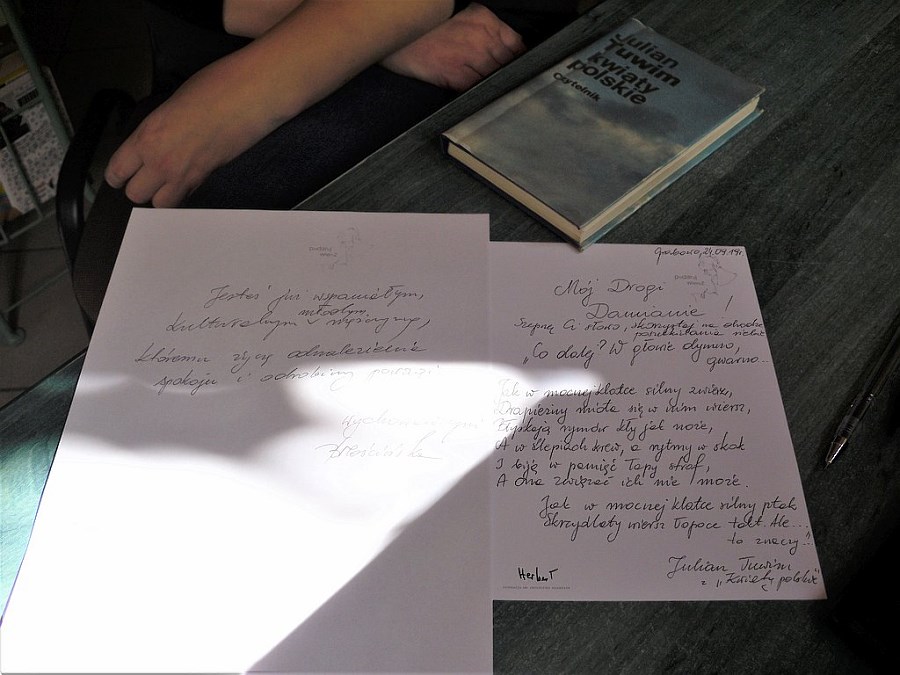 Julian
Tuwim
kwiaty
polskie
czytelnik
Jesteś już wspaniałym,
młodym
kulturalnym v mężczyzną,
któremu życzę odnalezienia
spokoju i odrobiny poezji
Wychowawczyni
Grabowo, 24.09.14r.
Mój Drogi
Damianie!
Szepnę Ci słowo, skorzystaj na drodze
poszukiwania siebie
"Co dalej? W głowie dymno,
gwarno...
Jak w mocnej klatce silny zwierz,
Drapieżny miota się w nim wiersz,
Błyskają rymów kły jak noże,
A w ślepiach krew, a rytmy w skok
I biją w pamięć łapy strof,
A dna zwierząt ich nie może.
Jak w mocnej klatce silny ptak
Skrzydlaty wiersz łopoce tak. Ale...
to znaczy..."
Julian Tuwim
z "Kwiaty polskie"
Herbert